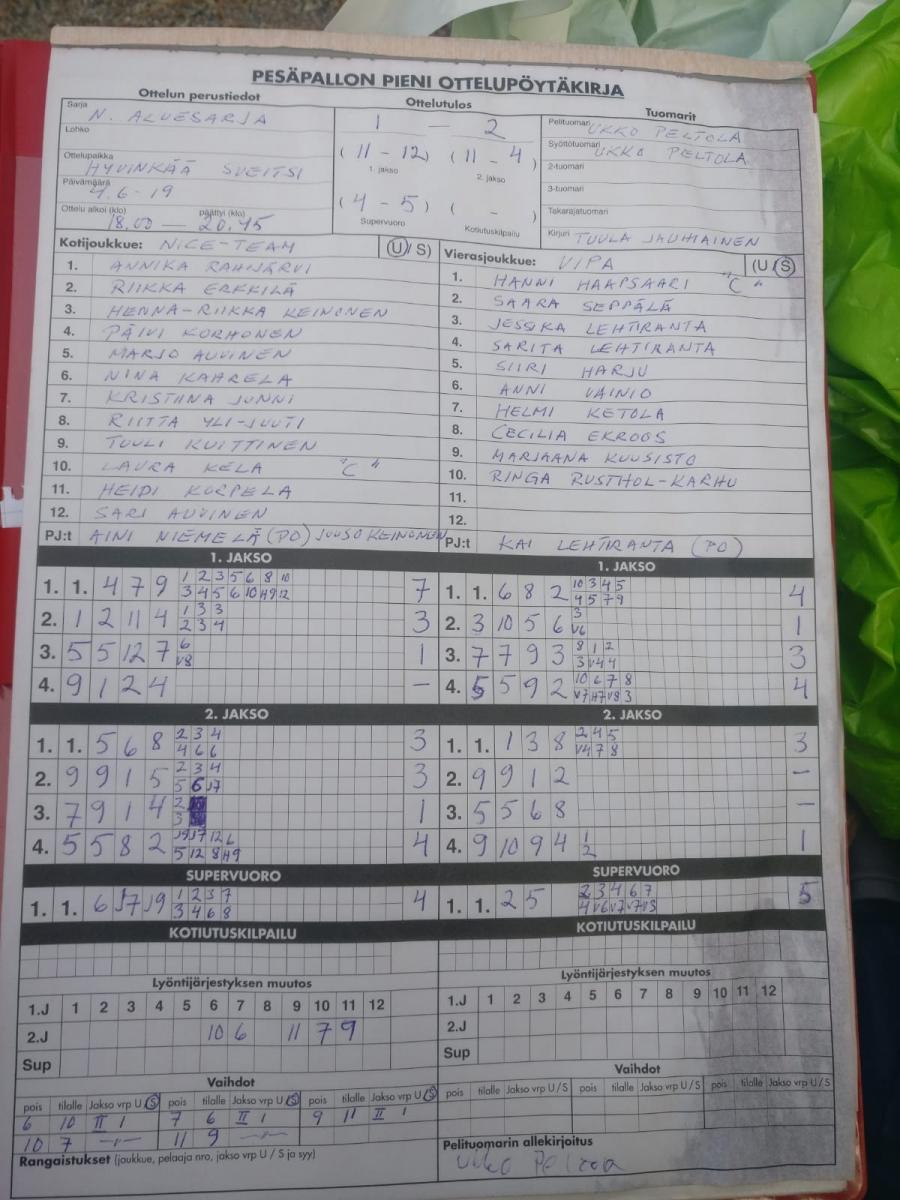 PESÄPALLON PIENI OTTELUPÖYTÄKIRJA
Ottelun perustiedot
Sarja N. ALUESARJA
Lohko
Ottelupaikka HYVINKÄÄ SVEITSI
Päivämäärä 4.6-19
Ottelu alkoi (klo) päättyi (klo)
18.00 — 20.45
Ottelutulos
1 — 2
(11 - 12) (11 - 4)
1. jakso 2. jakso
(4 - 5) ( - )
Supervuoro Kotiutuskilpailu
Tuomarit
Pelituomari UKKO PELTOLA
Syöttötuomari UKKO PELTOLA
2-tuomari
3-tuomari
Takarajatuomari
Kirjuri TUULA JAUHIAINEN
Kotijoukkue: NICE-TEAM (U/S)
1. ANNIKA RAHIJÄRVI
2. RIIKKA ERKKILÄ
3. HENNA-RIIKKA KEINONEN
4. PÄIVI KORHONEN
5. MARJO AUVINEN
6. NINA KAHRELA
7. KRISTIINA JUNNI
8. RIITTA YLI-JUUTI
9. TUULI KUITTINEN
10. LAURA KELA "C"
11. HEIDI KORPELA
12. SARI AUVINEN
PJ:t AINI NIEMELÄ (PO) JUUSO KEINONEN
Vierasjoukkue: VIPA (U/S)
1. HANNI HAAPSAARI "C"
2. SAARA SEPPÄLÄ
3. JESSIKA LEHTIRANTA
4. SARITA LEHTIRANTA
5. SIIRI HARJU
6. ANNI VAINIO
7. HELMI KETOLA
8. CECILIA EKROOS
9. MARJAANA KUUSISTO
10. RINGA RUSTHOL-KARHU
11.
12.
PJ:t KAI LEHTIRANTA (PO)
1. JAKSO
1. 1. 4 7 9 1 2 3 5 6 8 10 7
2. 1 2 11 4 1 3 3 3
2 3 4
3. 5 5 12 7 6 1
V8
4. 9 1 2 4 –
1. JAKSO
1. 1. 6 8 2 10 3 4 5 4
4 5 7 9
2. 3 10 5 6 3 1
V6
3. 7 7 9 3 8 1 2 3
3 V4 4
4. 5 5 9 2 10 6 7 8 4
2. JAKSO
1. 1. 5 6 8 2 3 4 3
4 6 6
2. 9 9 1 5 2 3 4 3
3. 7 9 1 4 2 1
3
4. 5 5 8 2 4
2. JAKSO
1. 1. 1 3 8 2 4 5 3
V4 7 8
2. 9 9 1 2 –
3. 5 5 6 8 –
4. 9 10 9 4 1 1
2
SUPERVUORO
1. 1. 6 J7 J9 1 2 3 7 4
3 4 6 8
SUPERVUORO
1. 1. 2 5 2 3 4 6 7 5
KOTIUTUSKILPAILU
KOTIUTUSKILPAILU
Lyöntijärjestyksen muutos
1.J 1 2 3 4 5 6 7 8 9 10 11 12
2.J 10 6 11 7 9
Sup
Lyöntijärjestyksen muutos
1.J 1 2 3 4 5 6 7 8 9 10 11 12
2.J
Sup
Vaihdot
pois tilalle Jakso vrp U/S pois tilalle Jakso vrp U/S pois tilalle Jakso vrp U/S
6 10 II 1 7 6 II 1 9 11 II 1
10 7 –"– 11 9 –"–
Rangaistukset (joukkue, pelaaja nro, jakso vrp U / S ja syy)
Vaihdot
pois tilalle Jakso vrp U/S pois tilalle Jakso vrp U/S pois tilalle Jakso vrp U/S
Pelituomarin allekirjoitus
Ukko Peltola